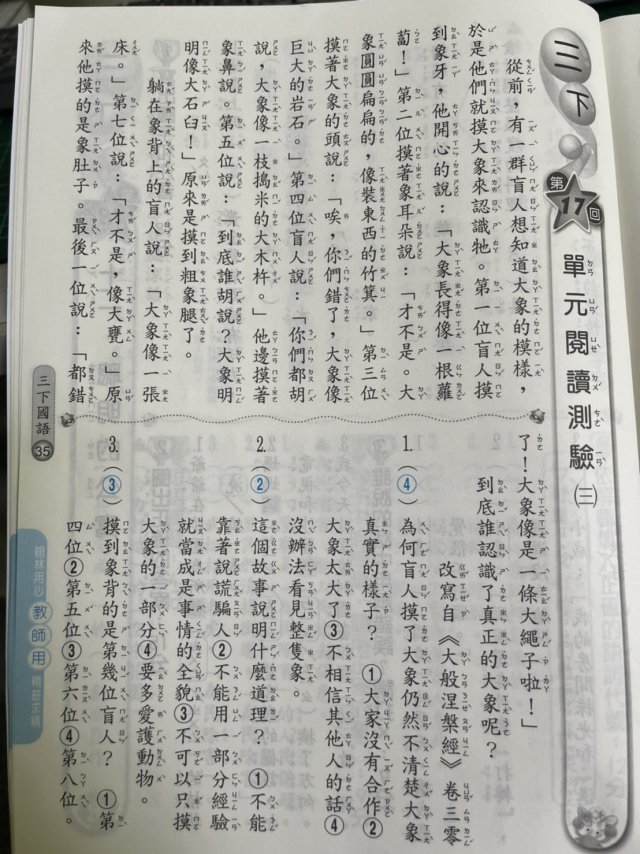 三下
第17回
單元閱讀測驗(三)
從前，有一群盲人想知道大象的模樣，
於是他們就摸大象來認識牠。第一位盲人摸
到象牙，他開心的說：「大象長得像一根蘿
蔔！」第二位摸著象耳朵說：「才不是。大
象圓圓扁扁的，像裝東西的竹箕。」第三位
摸著大象的頭說：「唉，你們錯了，大象像
巨大的岩石。」第四位盲人說：「你們都胡
說，大象像一枝搗米的大木杵。」他邊摸著
象鼻說。第五位說：「到底誰胡說？大象明
明像大石臼！」原來是摸到粗象腿了。
躺在象背上的盲人說：「大象像一張
床。」第七位說：「才不是，像大甕。」原
來他摸的是象肚子。最後一位說：「都錯
了！大象像是一條大繩子啦！」
到底誰認識了真正的大象呢？
改寫自《大般涅槃經》卷三零
1.(4)為何盲人摸了大象仍然不清楚大象
真實的樣子？ ①大家沒有合作②
大象太大了③不相信其他人的話④
沒辦法看見整隻象。
2.(2)這個故事說明什麼道理？ ①不能
靠著說謊騙人②不能用一部分經驗
就當成是事情的全貌③不可以只摸
大象的一部分④要多愛護動物。
3.(3)摸到象背的是第幾位盲人？ ①第
四位②第五位③第六位④第八位。
三下國語 35
翰林用心 教師用 精益求精